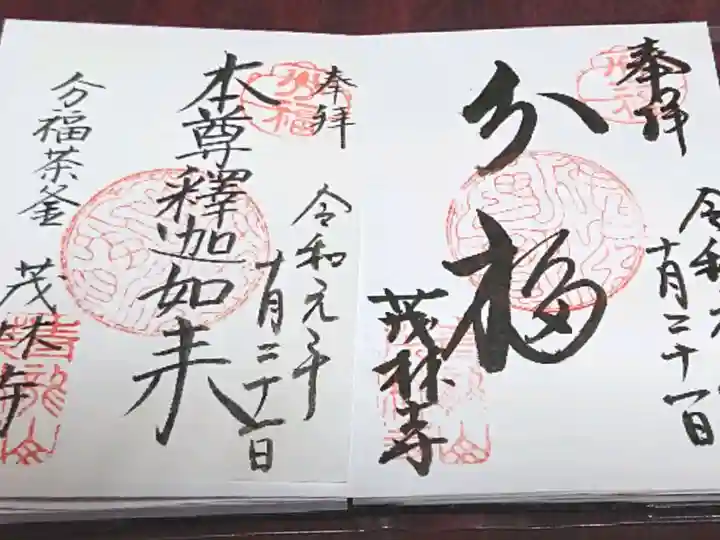 奉拝
令和
十月二十一日
分福
茂林寺
奉拝
令和元年
十月二十一日
分福
本尊釋迦如来
分福茶釜
茂林寺